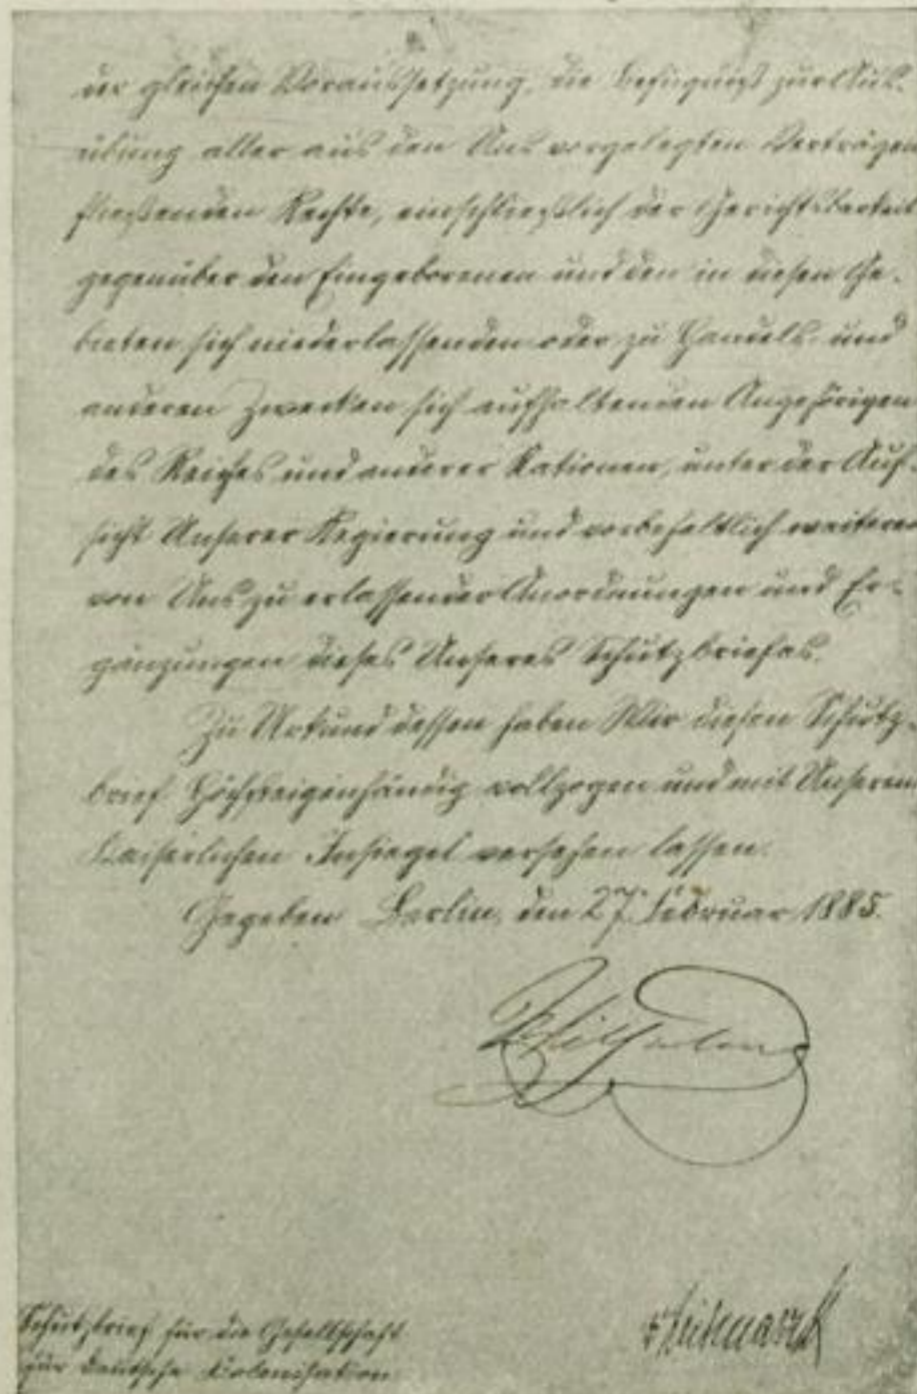 der gleichen Voraussetzung, die Befugniß zur Aus-
übung aller aus den Uns vorgelegten Verträgen
fließenden Rechte, einschließlich der Gerichtsbarkeit
gegenüber den Eingeborenen und den in diesen Ge-
bieten sich niederlassenden oder zu Handels- und
anderen Zwecken sich aufhaltenden Angehörigen
des Reiches und anderer Nationen, unter der Auf-
sicht Unserer Regierung und vorbehaltlich weiterer
von Uns zu erlassender Anordnungen und Er-
gänzungen dieses Unseres Schutzbriefes.
Zu Urkund dessen haben Wir diesen Schutz-
brief Höchsteigenhändig vollzogen und mit Unserem
Kaiserlichen Insiegel versehen lassen.
Gegeben Berlin, den 27. Februar 1885.
Wilhelm
v Bismarck
Schutzbrief für die Gesellschaft
für deutsche Colonisation